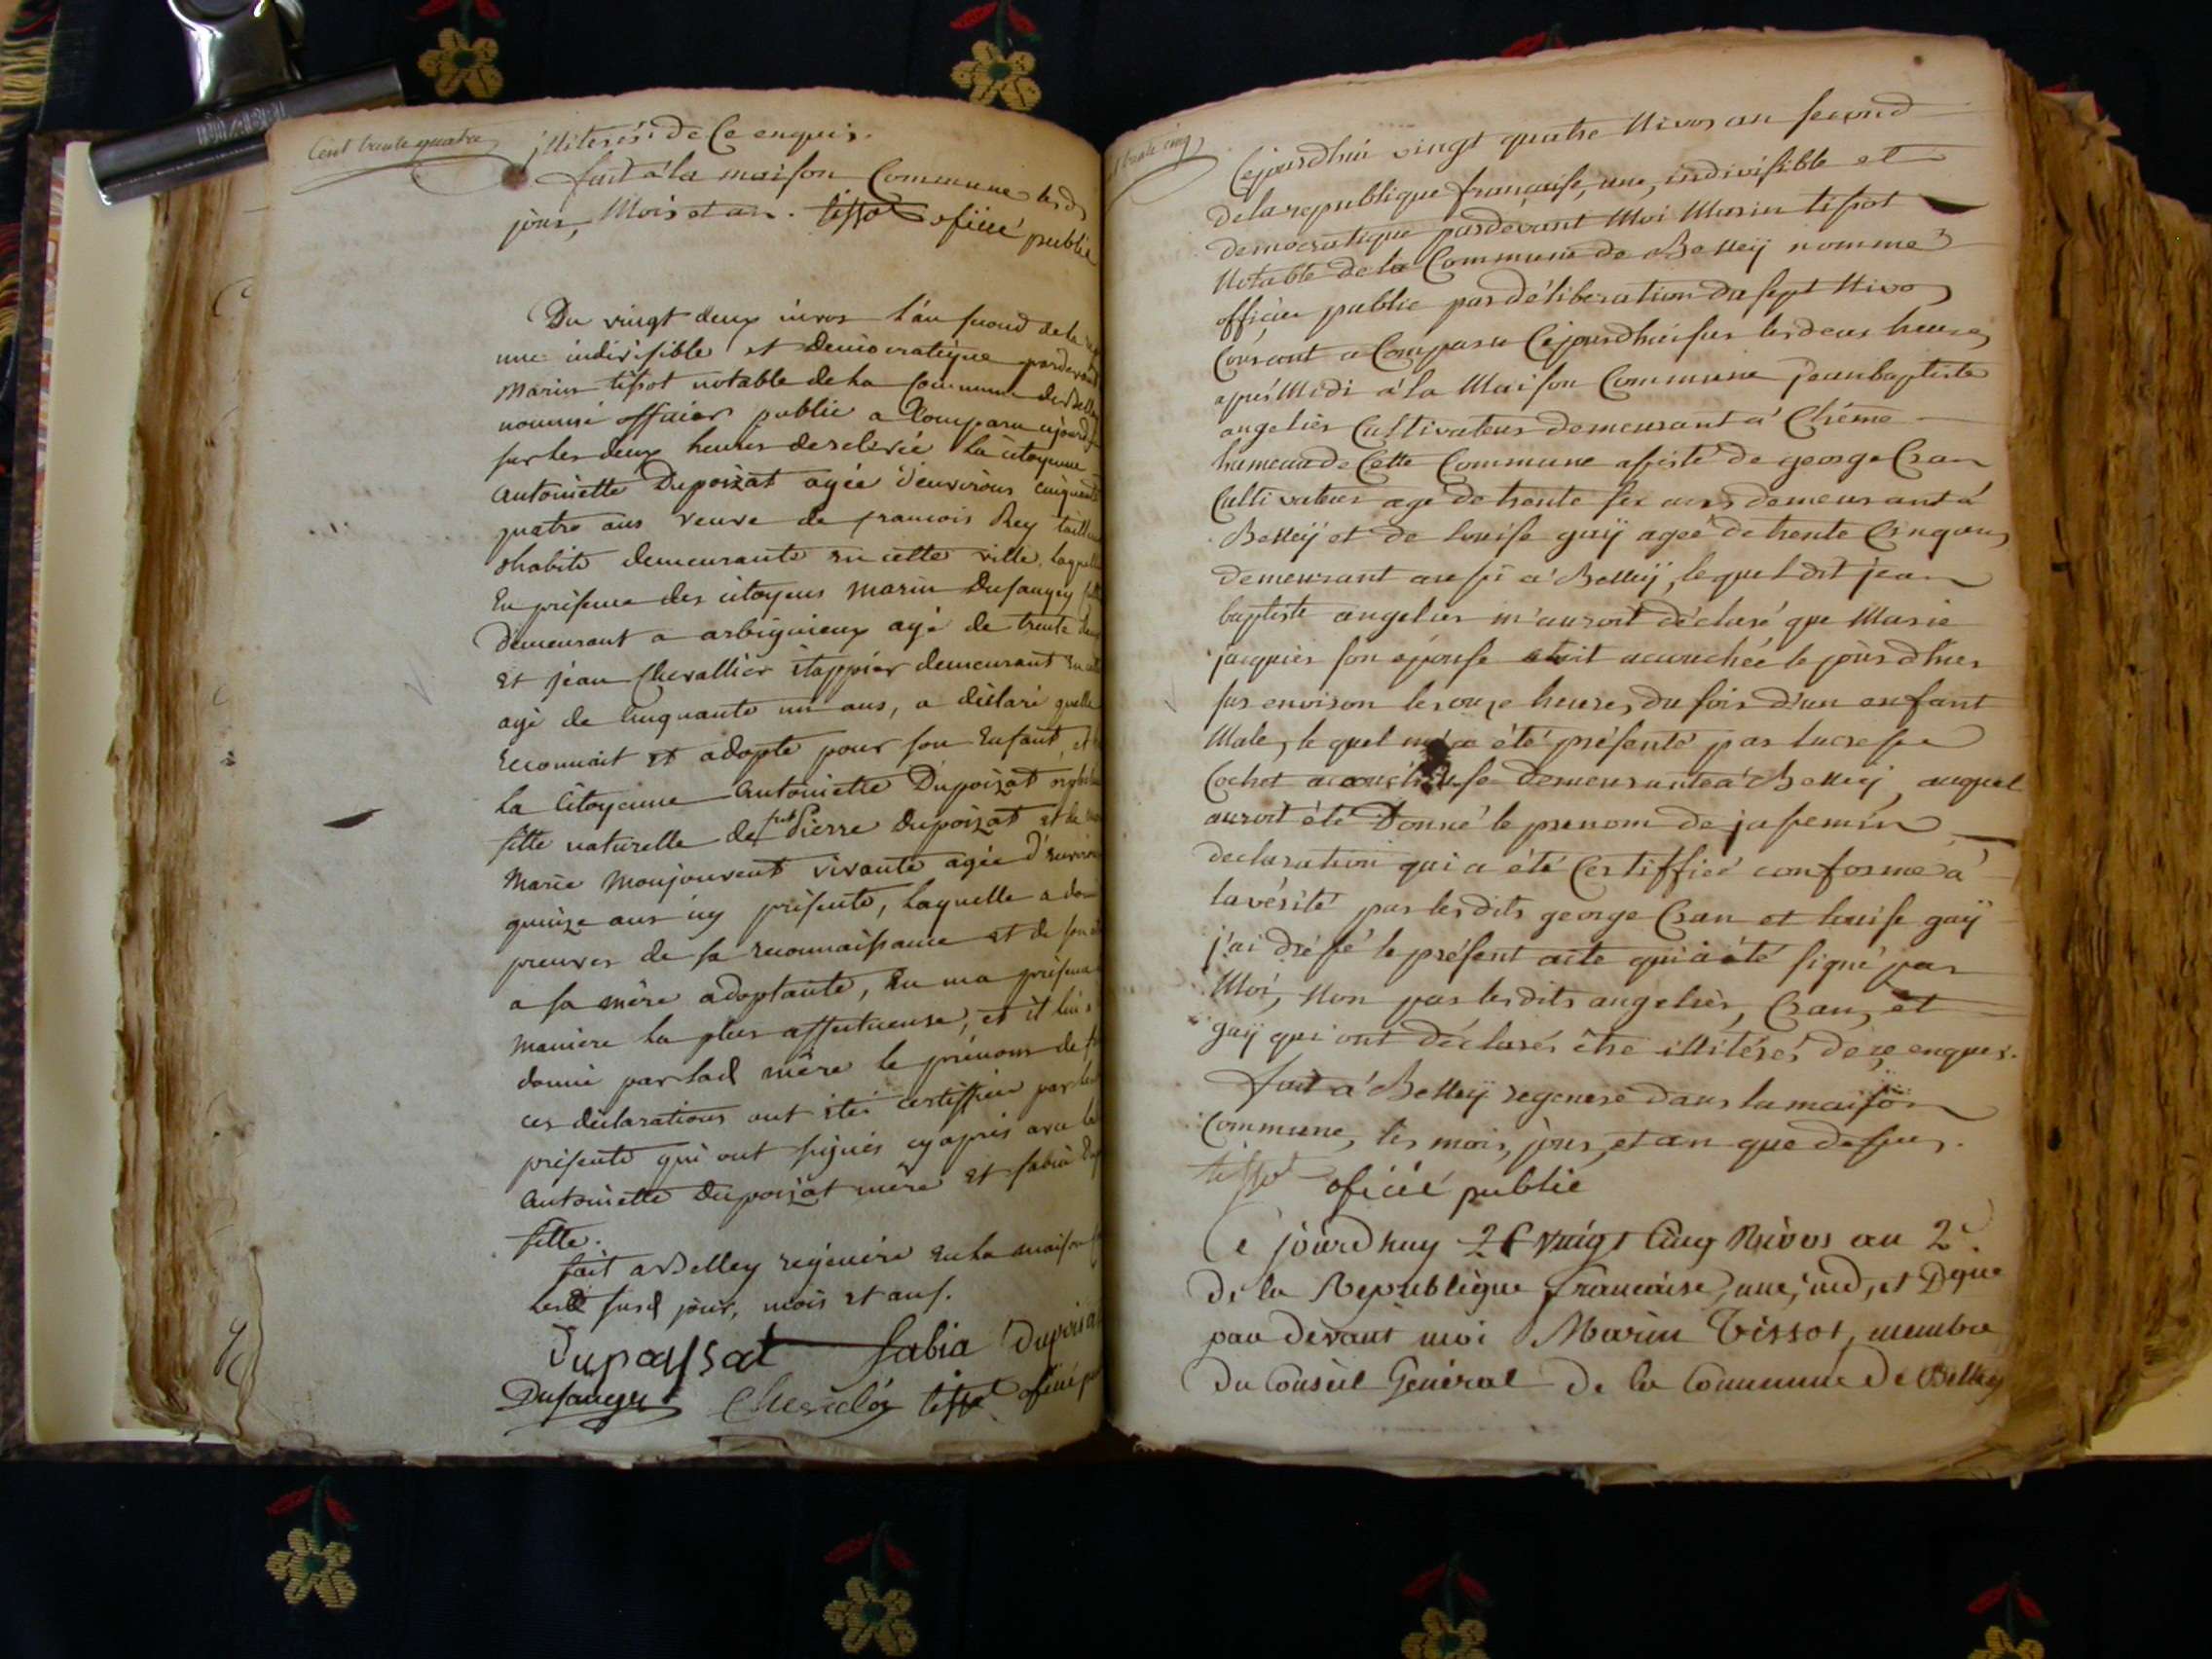 Cent trente quatre
illiterés de Ce enquis.
fait à la maison Commune lesds
jour, Mois et an. tissot oficié public
Du vingt deux nivos l'an second de la
une indivisible et democratique pardevant
Marin tissot notable de la Commune de Belley
nommé officier public a Comparu
sur les deux heures de relevée la citoyenne
antoinette Dupoizat agée d'environs cinquante
quatre ans veuve de francois Rey tailleur
dhabits demeurante en cette ville, laquelle
En présence des citoyens marin Dufaugey
demeurant a arbignieux agé de trente
Et jean Chevallier demeurant en
agé de Cinquante un ans, a déclaré quelle
Reconnait et adopte pour son Enfant,
la Citoyenne antoinette Dupoizat
fille naturelle de fut Pierre Dupoizat et de
Marie Monjouvent vivante agée d'environ
quinze ans icy présente, laquelle a
preuves de sa reconnaissance et de son
a sa mère adoptante, En ma présence
maniere la plus affectueuse, et il lui
donné par lad mère le prénoms de
ces déclarations ont étéi certiffiées par
présente qui ont signés cy après avec
antoinette Dupoizat mère et fabia
fille.
fait a Belley régénéré En la maison
susd jour, mois et ans.
Dupaysat fabia Dupoisa
Dufaugey tissot oficié
trente cinq
Cejourdhui vingt quatre Nivos an second
de la republique française, une, indivisible et
democratique pardevant Moi Marin tissot
Notable de la Commune de Belleÿ nommé
officier public par déliberation du sept Nivos
Courant a Comparu Cejourdhui sur les deux heures
après Midi à la Maison Commune jeanbaptiste
angelier Cultivateur demeurant à Chémé
hameau de Cette Commune assisté de george Cran
Cultivateur agé de trente six ans demeurant à
Belleÿ et de louise guÿ ageé de trente Cinq ans
demeurant aussi à Belleÿ, lequel dit jean
baptiste angelier m'auroit déclaré que Marie
jacquier son épouse etoit accouchée le jour d'hier
sur environ les onze heures du soir d'un enfant
Male, le quel m'a été présenté par lucresse
Cochet accoucheuse demeurante à Belleÿ auquel
auroit été Donné le prenom de jassemin
declaration qui a été Certiffiée conforme à
la vérité par lesdits george Cran et louise guÿ
j'ai dréssé le présent acte qui a été signé par
Moi, Non par lesdits angelier, Cran, et
guÿ qui ont déclarés être illitérés de ce enquis.
fait à Belleÿ regeneré dans la maison
Commune, les mois, jour, et an que dessus.
tissot oficié public
Ce jourdhuy 25 vingt Cinq Nivos an 2e.
de la Republique francaise, une, ind, et Dque
par devant moi Marin Tissot, membre
du Conseil Général de la Commune de Belley